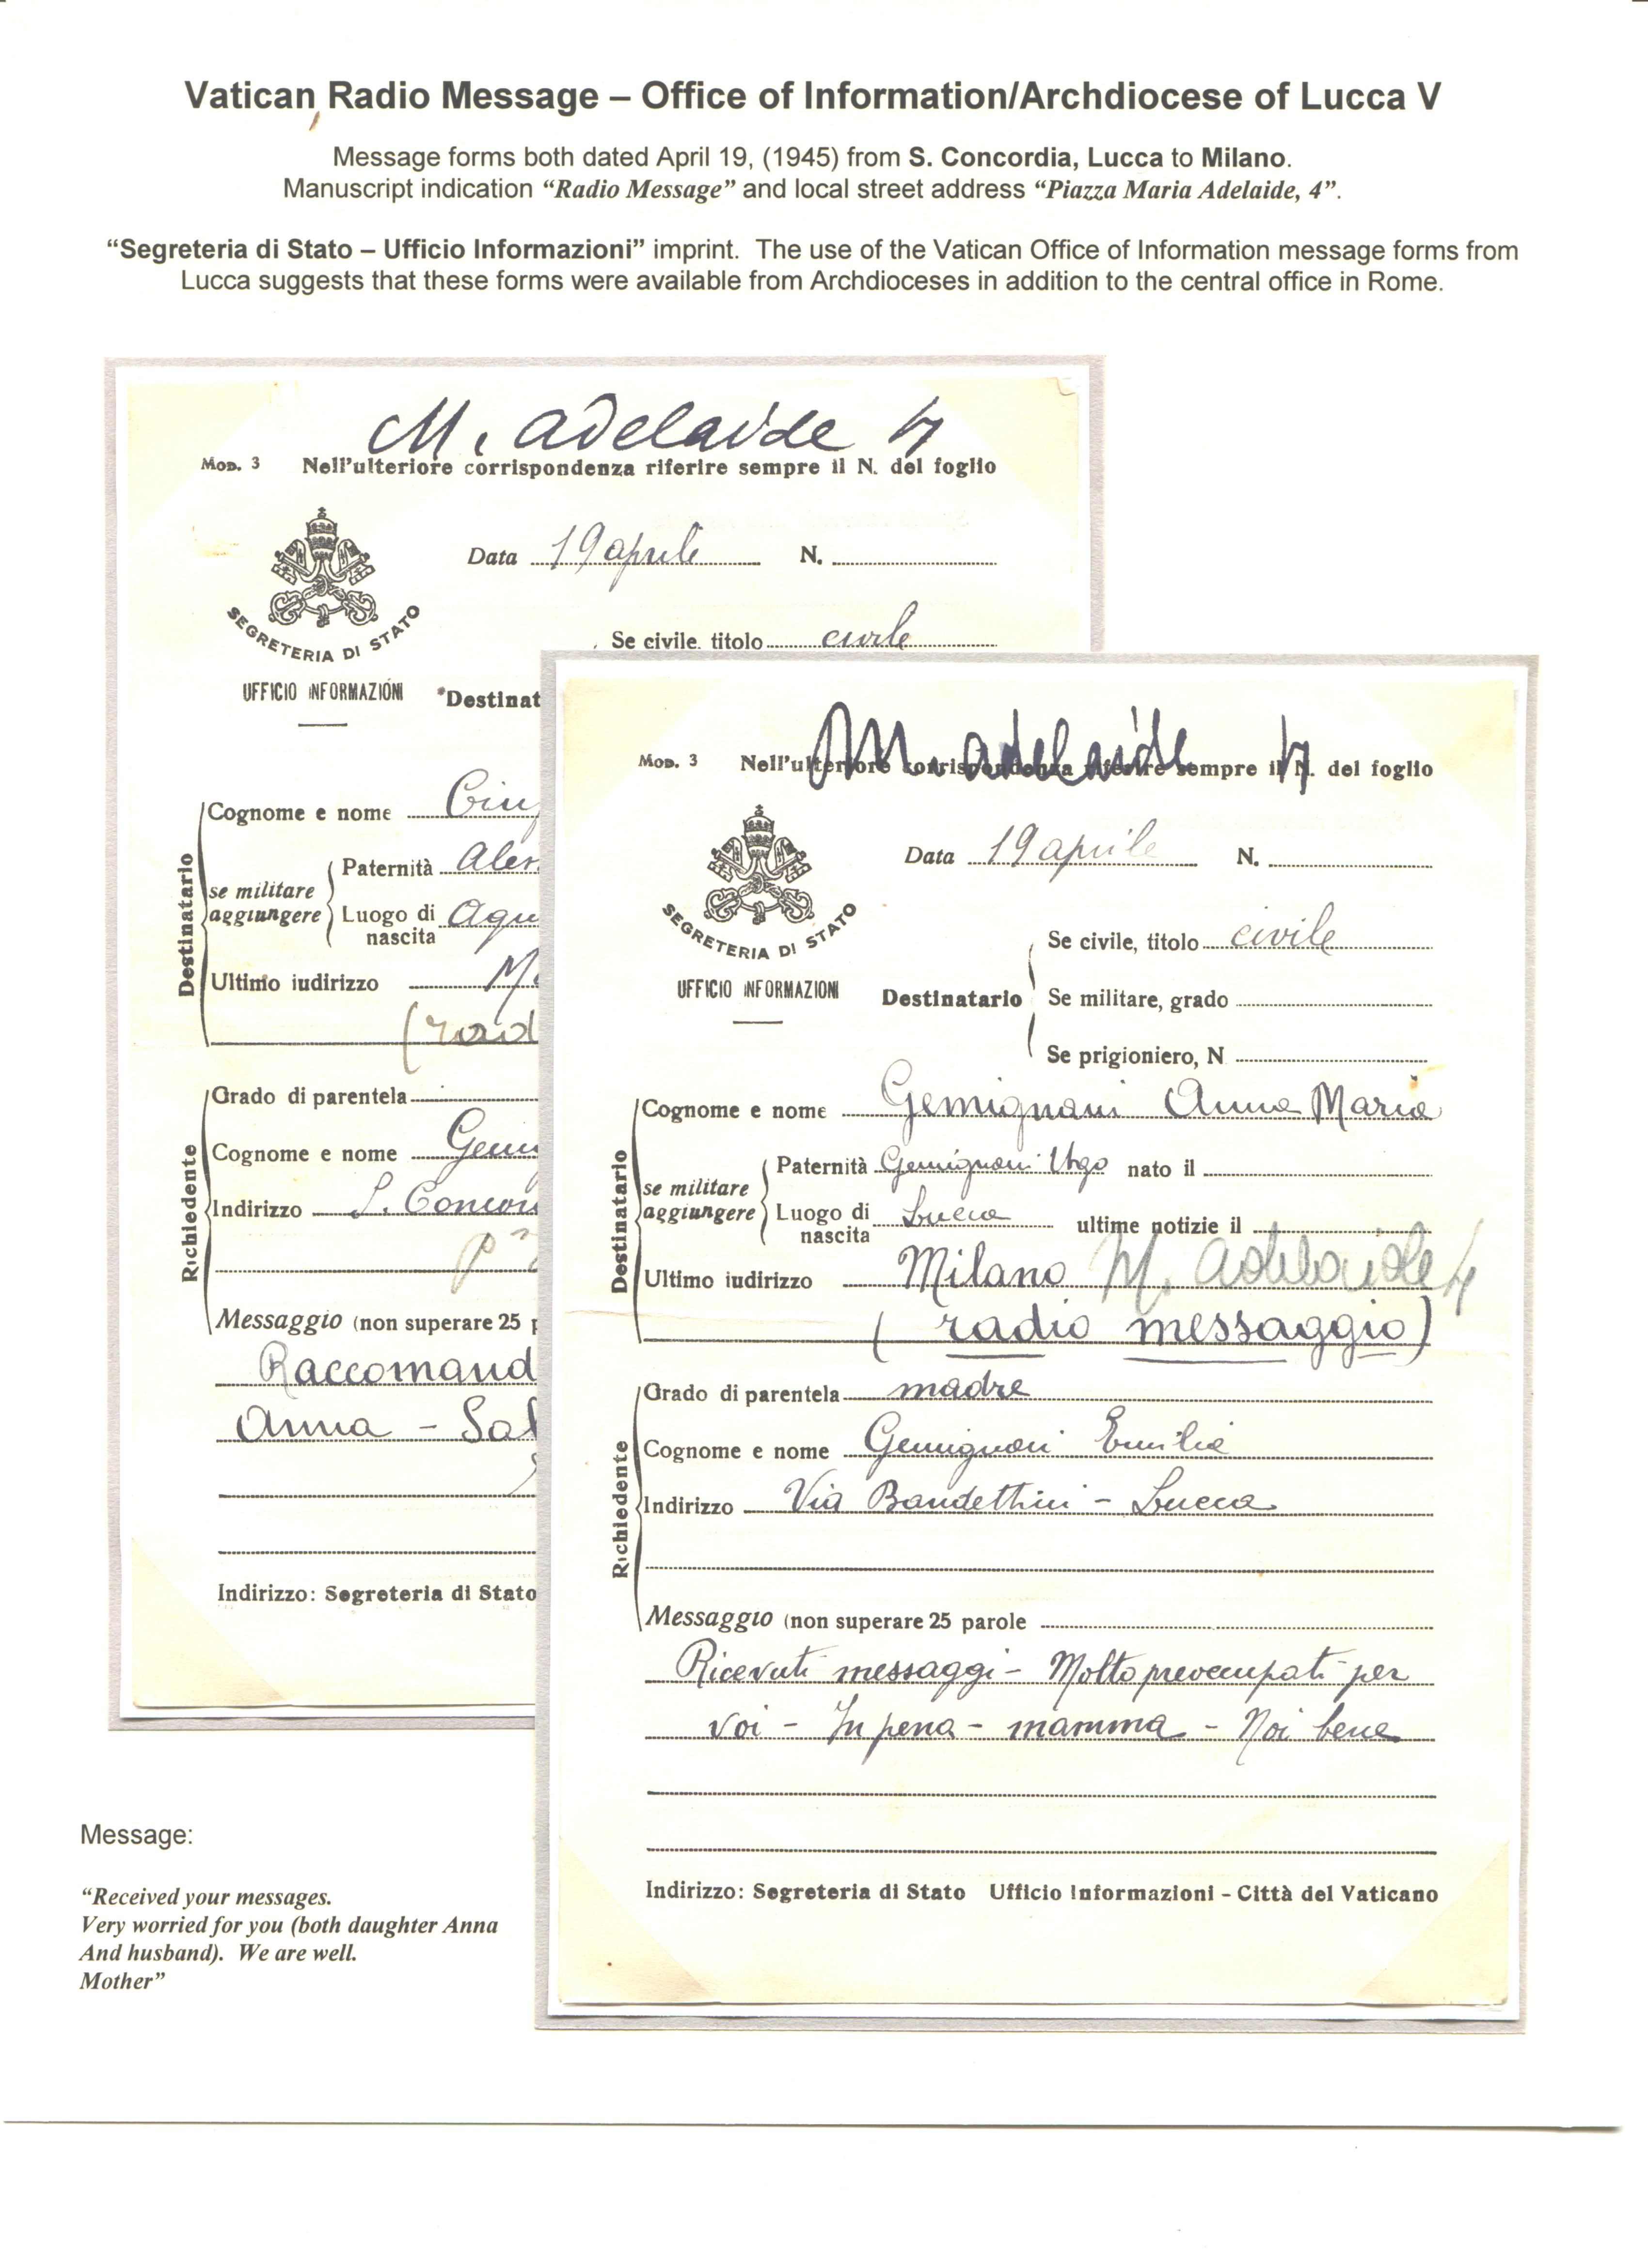 Vatican Radio Message – Office of Information/Archdiocese of Lucca V
Message forms both dated April 19, (1945) from S. Concordia, Lucca to Milano.
Manuscript indication “Radio Message” and local street address “Piazza Maria Adelaide, 4”.
“Segreteria di Stato – Ufficio Informazioni” imprint. The use of the Vatican Office of Information message forms from
Lucca suggests that these forms were available from Archdioceses in addition to the central office in Rome.
M. Adelaide 4
Mod. 3 Nell'ulteriore corrispondenza riferire sempre il N. del foglio
Data 19 aprile N.
SEGRETERIA DI STATO
Se civile, titolo civile
UFFICIO INFORMAZIONI
Destinat
Cognome e nome
Destinatario
se militare aggiungere
Paternità
Luogo di nascita
Ultimo iudirizzo
(rad
Richiedente
Grado di parentela
Cognome e nome
Indirizzo S. Concor
Messaggio (non superare 25 p
Raccomand
Anna - Sal
Indirizzo: Segreteria di Stato
M. Adelaide 4
Mod. 3 Nell'ulteriore corrispondenza riferire sempre il N. del foglio
Data 19 aprile N.
SEGRETERIA DI STATO
UFFICIO INFORMAZIONI
Destinatario
Se civile, titolo civile
Se militare, grado
Se prigioniero, N
Destinatario
Cognome e nome Gemignani Anna Maria
se militare aggiungere
Paternità Gemignani Ugo nato il
Luogo di nascita Lucca ultime notizie il
Ultimo iudirizzo Milano M. Adelaide 4
( radio messaggio )
Richiedente
Grado di parentela madre
Cognome e nome Gemignani Emilia
Indirizzo Via Bandettini - Lucca
Messaggio (non superare 25 parole
Ricevuti messaggi - Molto preoccupati per
voi - In pena - mamma - Noi bene
Indirizzo: Segreteria di Stato Ufficio Informazioni - Città del Vaticano
Message:
“Received your messages.
Very worried for you (both daughter Anna
And husband). We are well.
Mother”